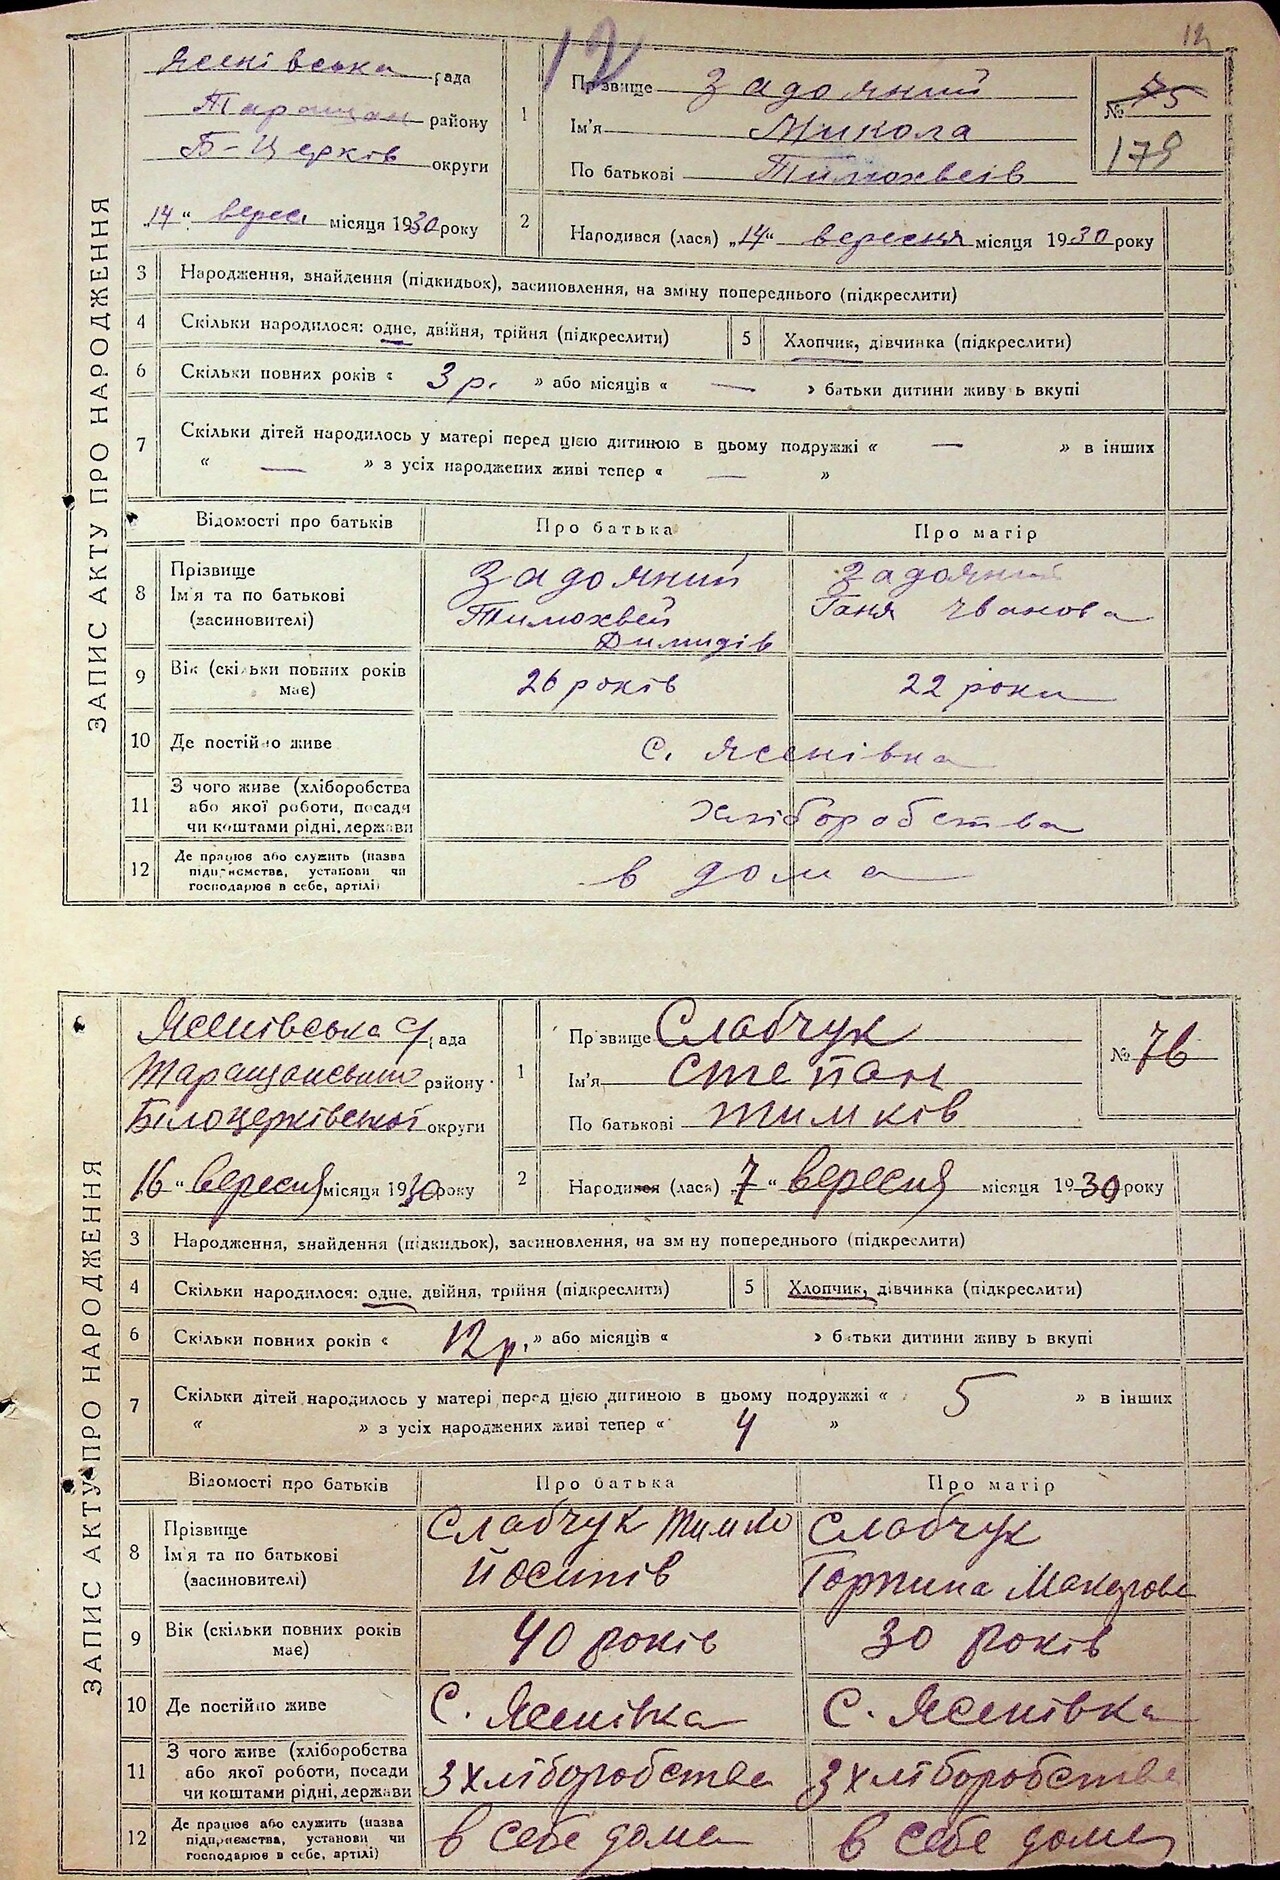 12
12
ЗАПИС АКТУ ПРО НАРОДЖЕННЯ
Ясенівська рада
Таращан району
Б-Церків округи
„14“ верес. місяця 1930 року
1
Прізвище Задояний
Ім'я Микола
По батькові Тимохвеів
№ 75
179
2
Народився (лася) „14“ вересня місяця 1930 року
3 Народження, знайдення (підкидьок), засиновлення, на зміну попереднього (підкреслити)
4 Скільки народилося: одне, двійня, трійня (підкреслити)
5 Хлопчик, дівчинка (підкреслити)
6 Скільки повних років « 3 р. » або місяців « — » батьки дитини живуть вкупі
7 Скільки дітей народилось у матері перед цією дитиною в цьому подружжі « — » в інших
« — » з усіх народжених живі тепер « — »
Відомості про батьків Про батька Про матір
8 Прізвище
Ім'я та по батькові
(засиновителі)
Задояний
Тимохвей
Димидів
Задояний
Ганя Іванова
9 Вік (скільки повних років
має)
26 років 22 роки
10 Де постійно живе с. Ясенівка
11 З чого живе (хліборобства
або якої роботи, посади
чи коштами рідні, держави
хліборобства
12 Де працює або служить (назва
підприємства, установи чи
господарює в себе, артілі)
в дома
ЗАПИС АКТУ ПРО НАРОДЖЕННЯ
Ясенівська с/рада
Таращанського району
Білоцерківської округи
16 “ вересня місяця 1930 року
1
Прізвище Слабчук
Ім'я Степан
По батькові Тимків
№ 76
2
Народився (лася) 7 “ вересня місяця 1930 року
3 Народження, знайдення (підкидьок), засиновлення, на зміну попереднього (підкреслити)
4 Скільки народилося: одне, двійня, трійня (підкреслити)
5 Хлопчик, дівчинка (підкреслити)
6 Скільки повних років « 12 р. » або місяців « » батьки дитини живуть вкупі
7 Скільки дітей народилось у матері перед цією дитиною в цьому подружжі « 5 » в інших
« » з усіх народжених живі тепер « 4 »
Відомості про батьків Про батька Про матір
8 Прізвище
Ім'я та по батькові
(засиновителі)
Слабчук Тимко
Йосипів
Слабчук
Горпина Макарова
9 Вік (скільки повних років
має)
40 років 30 років
10 Де постійно живе с. Ясенівка с. Ясенівка
11 З чого живе (хліборобства
або якої роботи, посади
чи коштами рідні, держави
З хліборобства З хліборобства
12 Де працює або служить (назва
підприємства, установи чи
господарює в себе, артілі)
в себе дома в себе дома